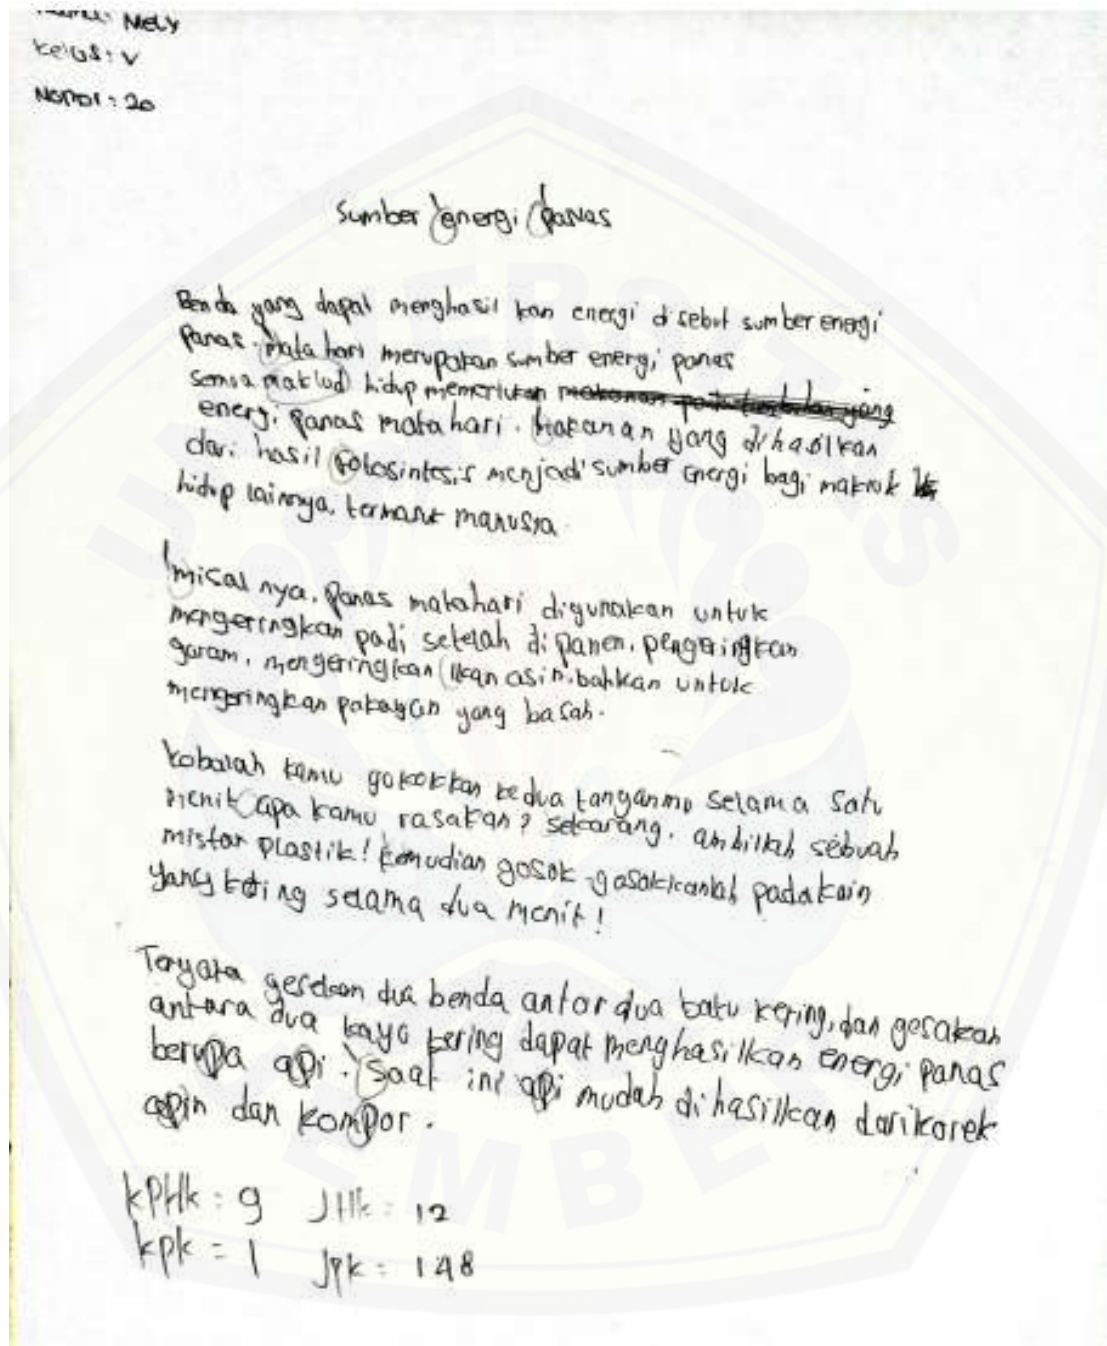 Nama: Mely
Kelas: V
Nomor: 20
Sumber energi panas
Benda yang dapat menghasil kan energi disebut sumber energi
Panas. Mata hari merupakan sumber energi panas
semua maklud hidup memerlukan makanan yang
energi panas matahari. Makanan yang dihasilkan
dari hasil fotosintesis menjadi sumber energi bagi makluk
hidup lainnya, termasuk manusia.
misal nya. Panas matahari digunakan untuk
mengeringkan padi setelah di panen. pengeringkan
garam, mengeringkan ikan asin. bahkan untuk
mengeringkan pakayan yang basah.
kobalah kamu gokokkan kedua tanganmu selama satu
menit apa kamu rasakan? sekarang. ambillah sebuah
mistar plastik! kemudian gosok-gosokkanlah pada kain
yang keting selama dua menit!
Teryata gesekan dua benda antar dua batu kering, dan gesakan
antara dua kayu kering dapat menghasilkan energi panas
berupa api. Saat ini api mudah dihasilkan dari korek
apin dan kompor.
KPHK = 9 JHK = 12
kpk = 1 JPK = 148
UNIVERSITAS
JEMBER